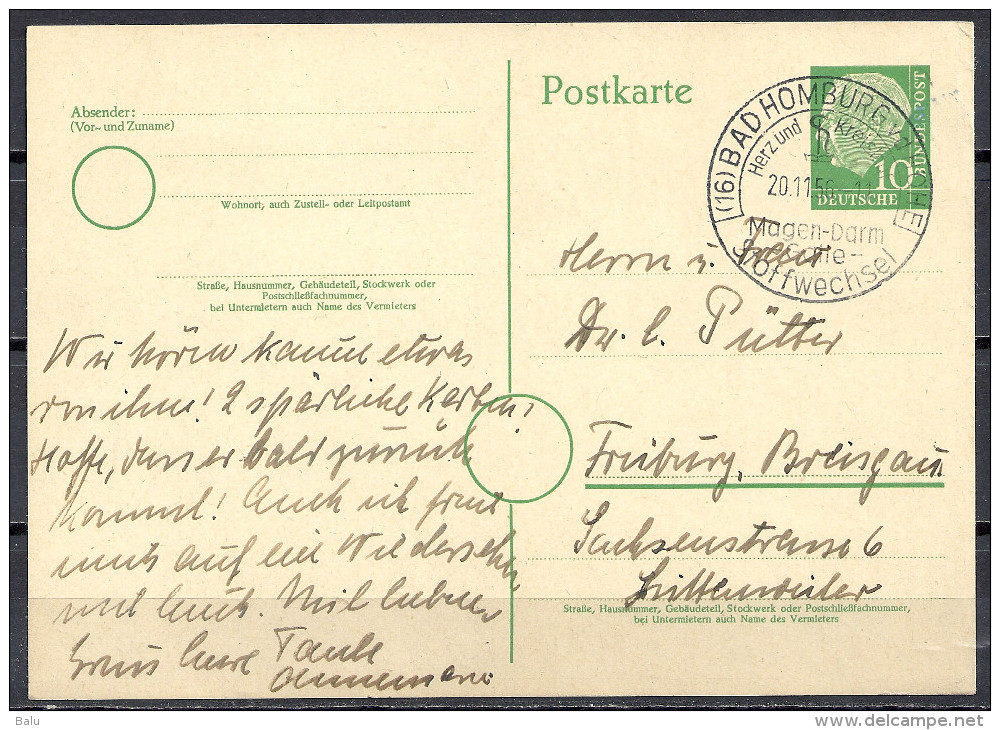 Absender:
(Vor- und Zuname)
Wohnort, auch Zustell- oder Leitpostamt
Straße, Hausnummer, Gebäudeteil, Stockwerk oder
Postschließfachnummer,
bei Untermietern auch Name des Vermieters
Wir hören kaum etwas
von ihm! 2 spärliche Karten!
Hoffe, dass er bald zurück
kommt! Auch ich freue
mich auf ein Wiedersehen
mit Euch. Mit lieben
Gruss Eure Tante
Annemarie
Postkarte
10
DEUTSCHE
BUNDESPOST
(16) BAD HOMBURG v.d. HÖHE
Herz und Kreisl
20.11.56
Magen-Darm
Stoffwechsel
Herrn u. Frau
Dr. E. Pütter
Freiburg, Breisgau
Sachsenstrasse 6
Littenweiler
Straße, Hausnummer, Gebäudeteil, Stockwerk oder Postschließfachnummer,
bei Untermietern auch Name des Vermieters
Balu
delcampe.net